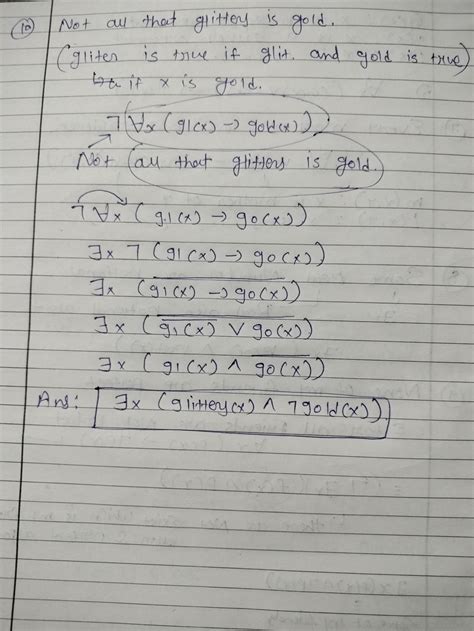 10 Not all that glitters is gold.
(gliter is true if glit. and gold is true)
if x is gold.
¬(∀x (gl(x) → gold(x)))
Not (all that glitters is gold.)
¬∀x (gl(x) → go(x))
∃x ¬ (gl(x) → go(x))
∃x (\overline{gl(x) → go(x)})
∃x (\overline{\overline{gl(x)} ∨ go(x)})
∃x (gl(x) ∧ \overline{go(x)})
Ans: ∃x (glittery(x) ∧ ¬gold(x))